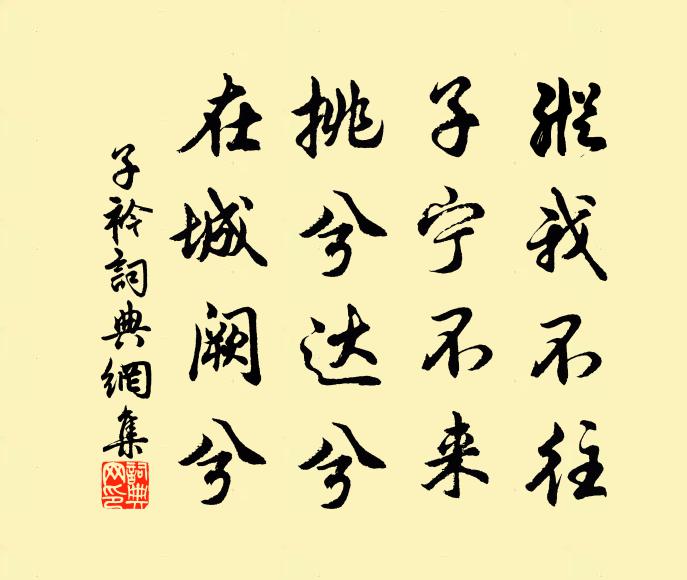 縱我不往
子宁不来
挑兮达兮
在城阙兮
子衿詞典網集
詞典
网印